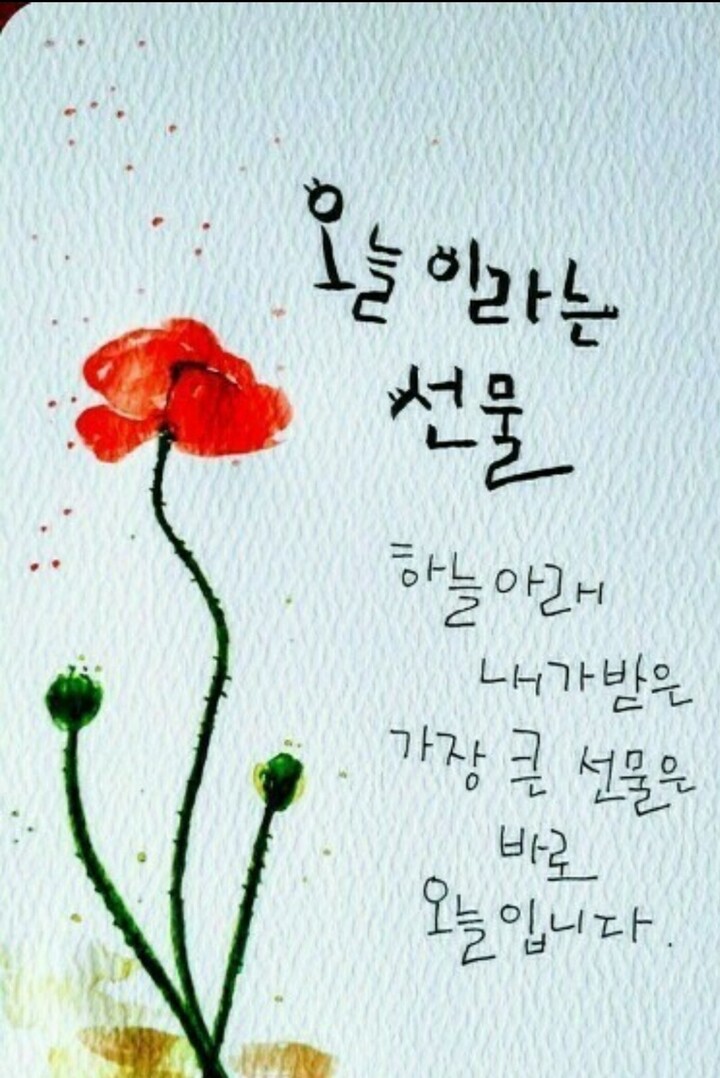 오늘이라는
선물
하늘아래
내가받은
가장 큰 선물은
바로
오늘입니다.